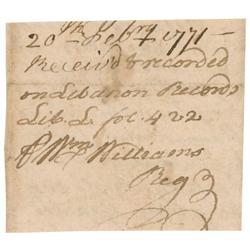 20th. Febry. 1771 —
Receivd & recorded
on Lebanon Records
Lib. L. fol. 422
Wm Williams
Regr